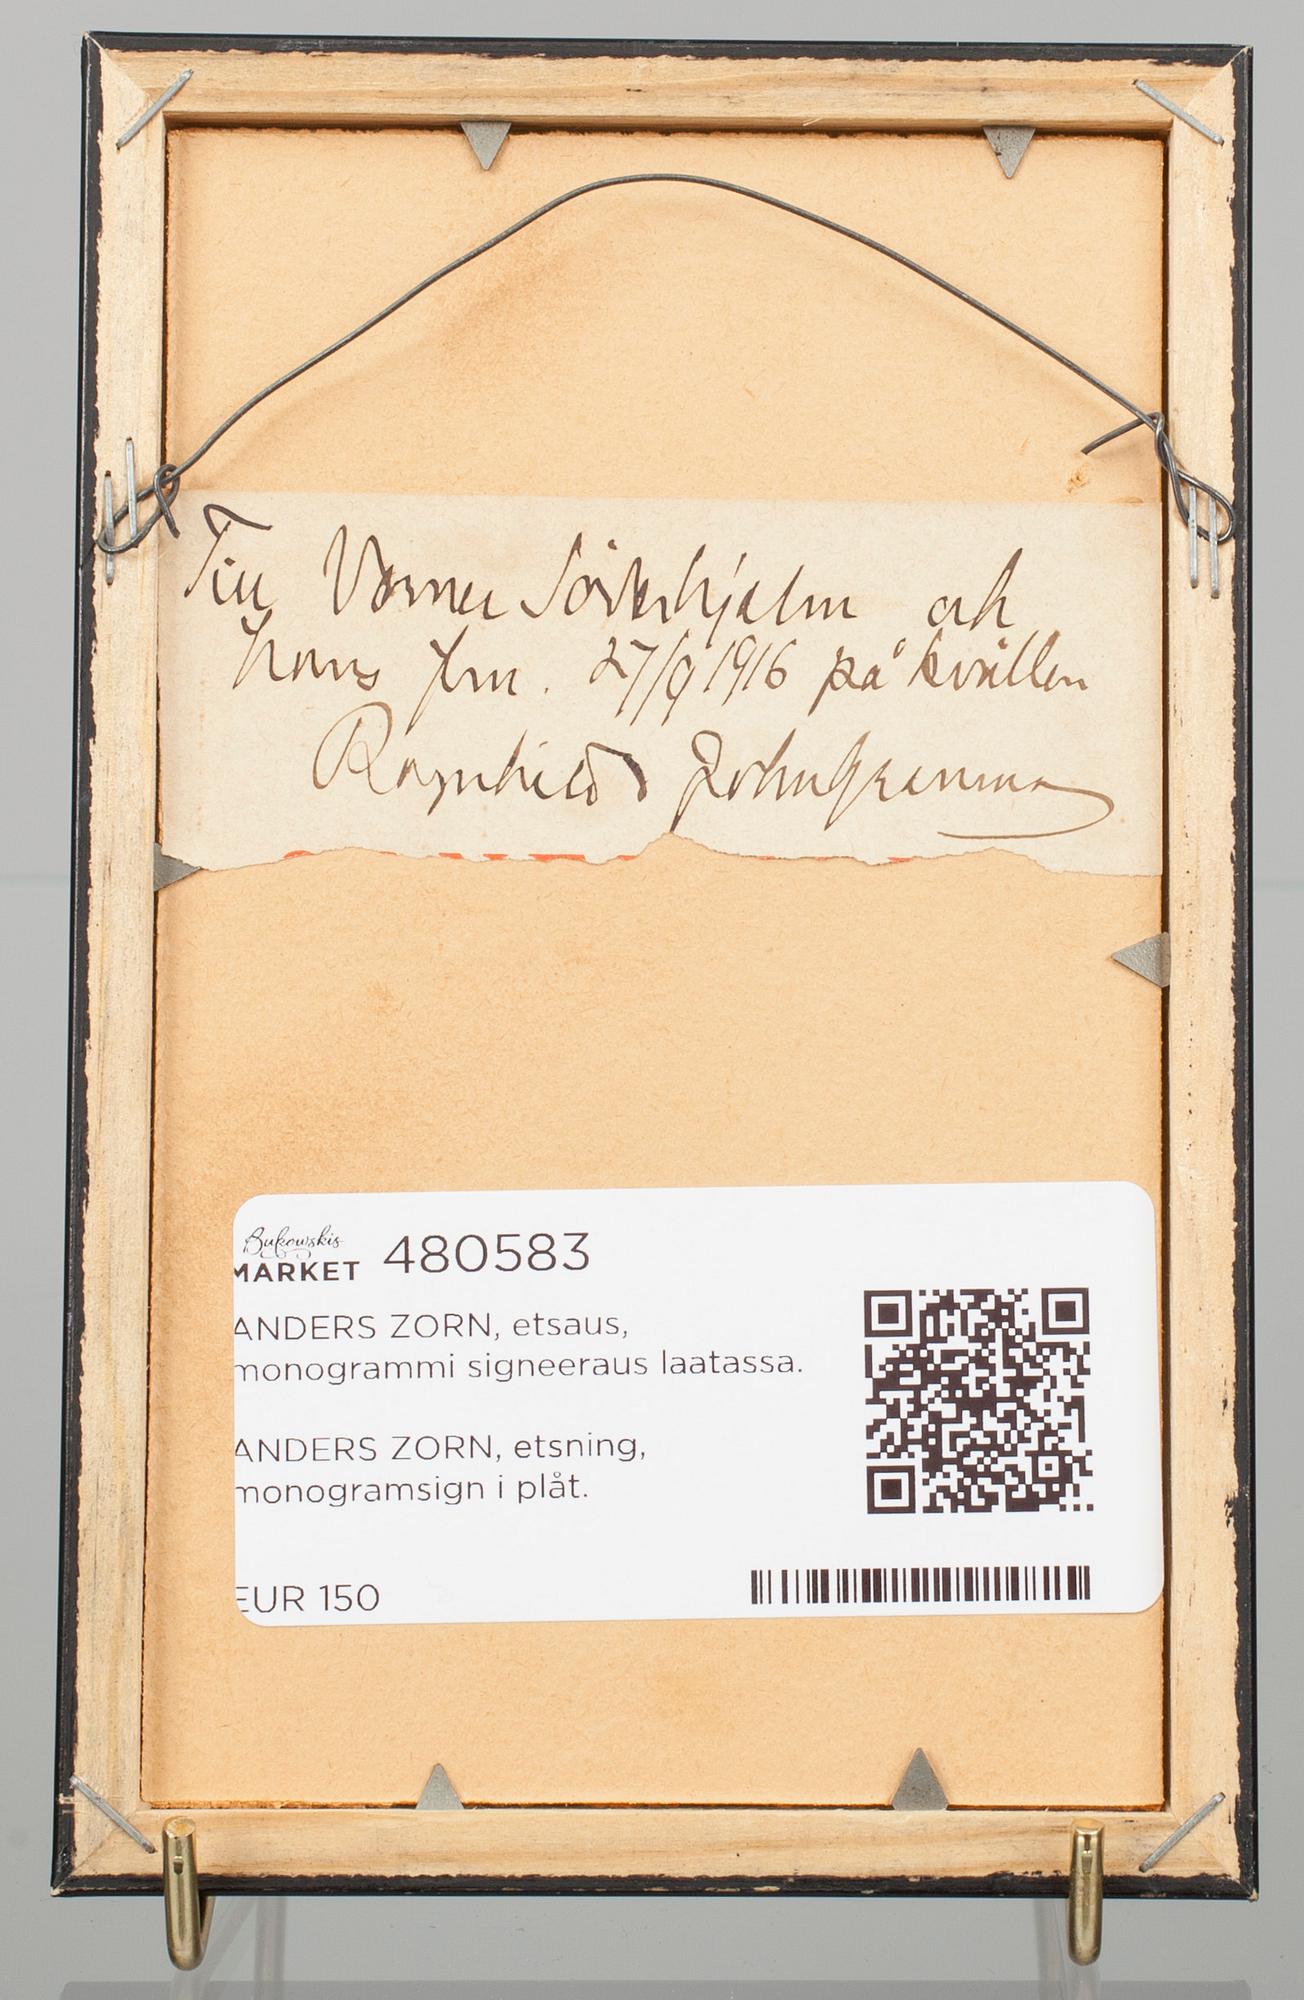 Till Verner Söderhjelm och
hans fru. 27/9 1916 på kvällen
Ragnhild
Bukowskis
MARKET
480583
ANDERS ZORN, etsaus,
monogrammi signeeraus laatassa.
ANDERS ZORN, etsning,
monogramsign i plåt.
EUR 150